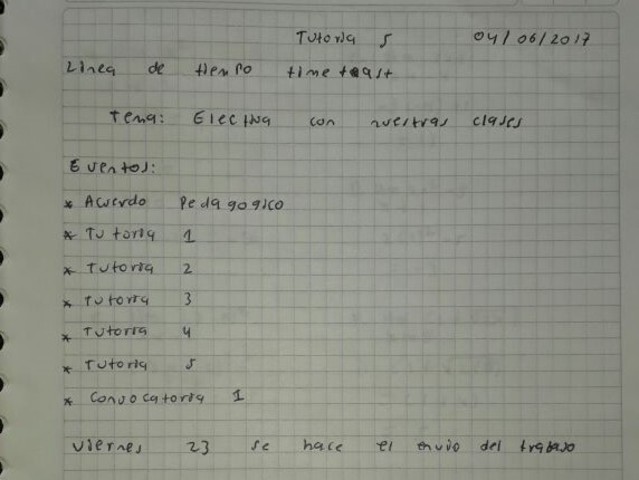 Tutoria 5 04/06/2017
Linea de tiempo timetoast
Tema: Electiva con nuestras clases
Eventos:
* Acuerdo Pedagogico
* Tutoria 1
* Tutoria 2
* Tutoria 3
* Tutoria 4
* Tutoria 5
* Convocatoria 1
Viernes 23 se hace el envio del trabajo